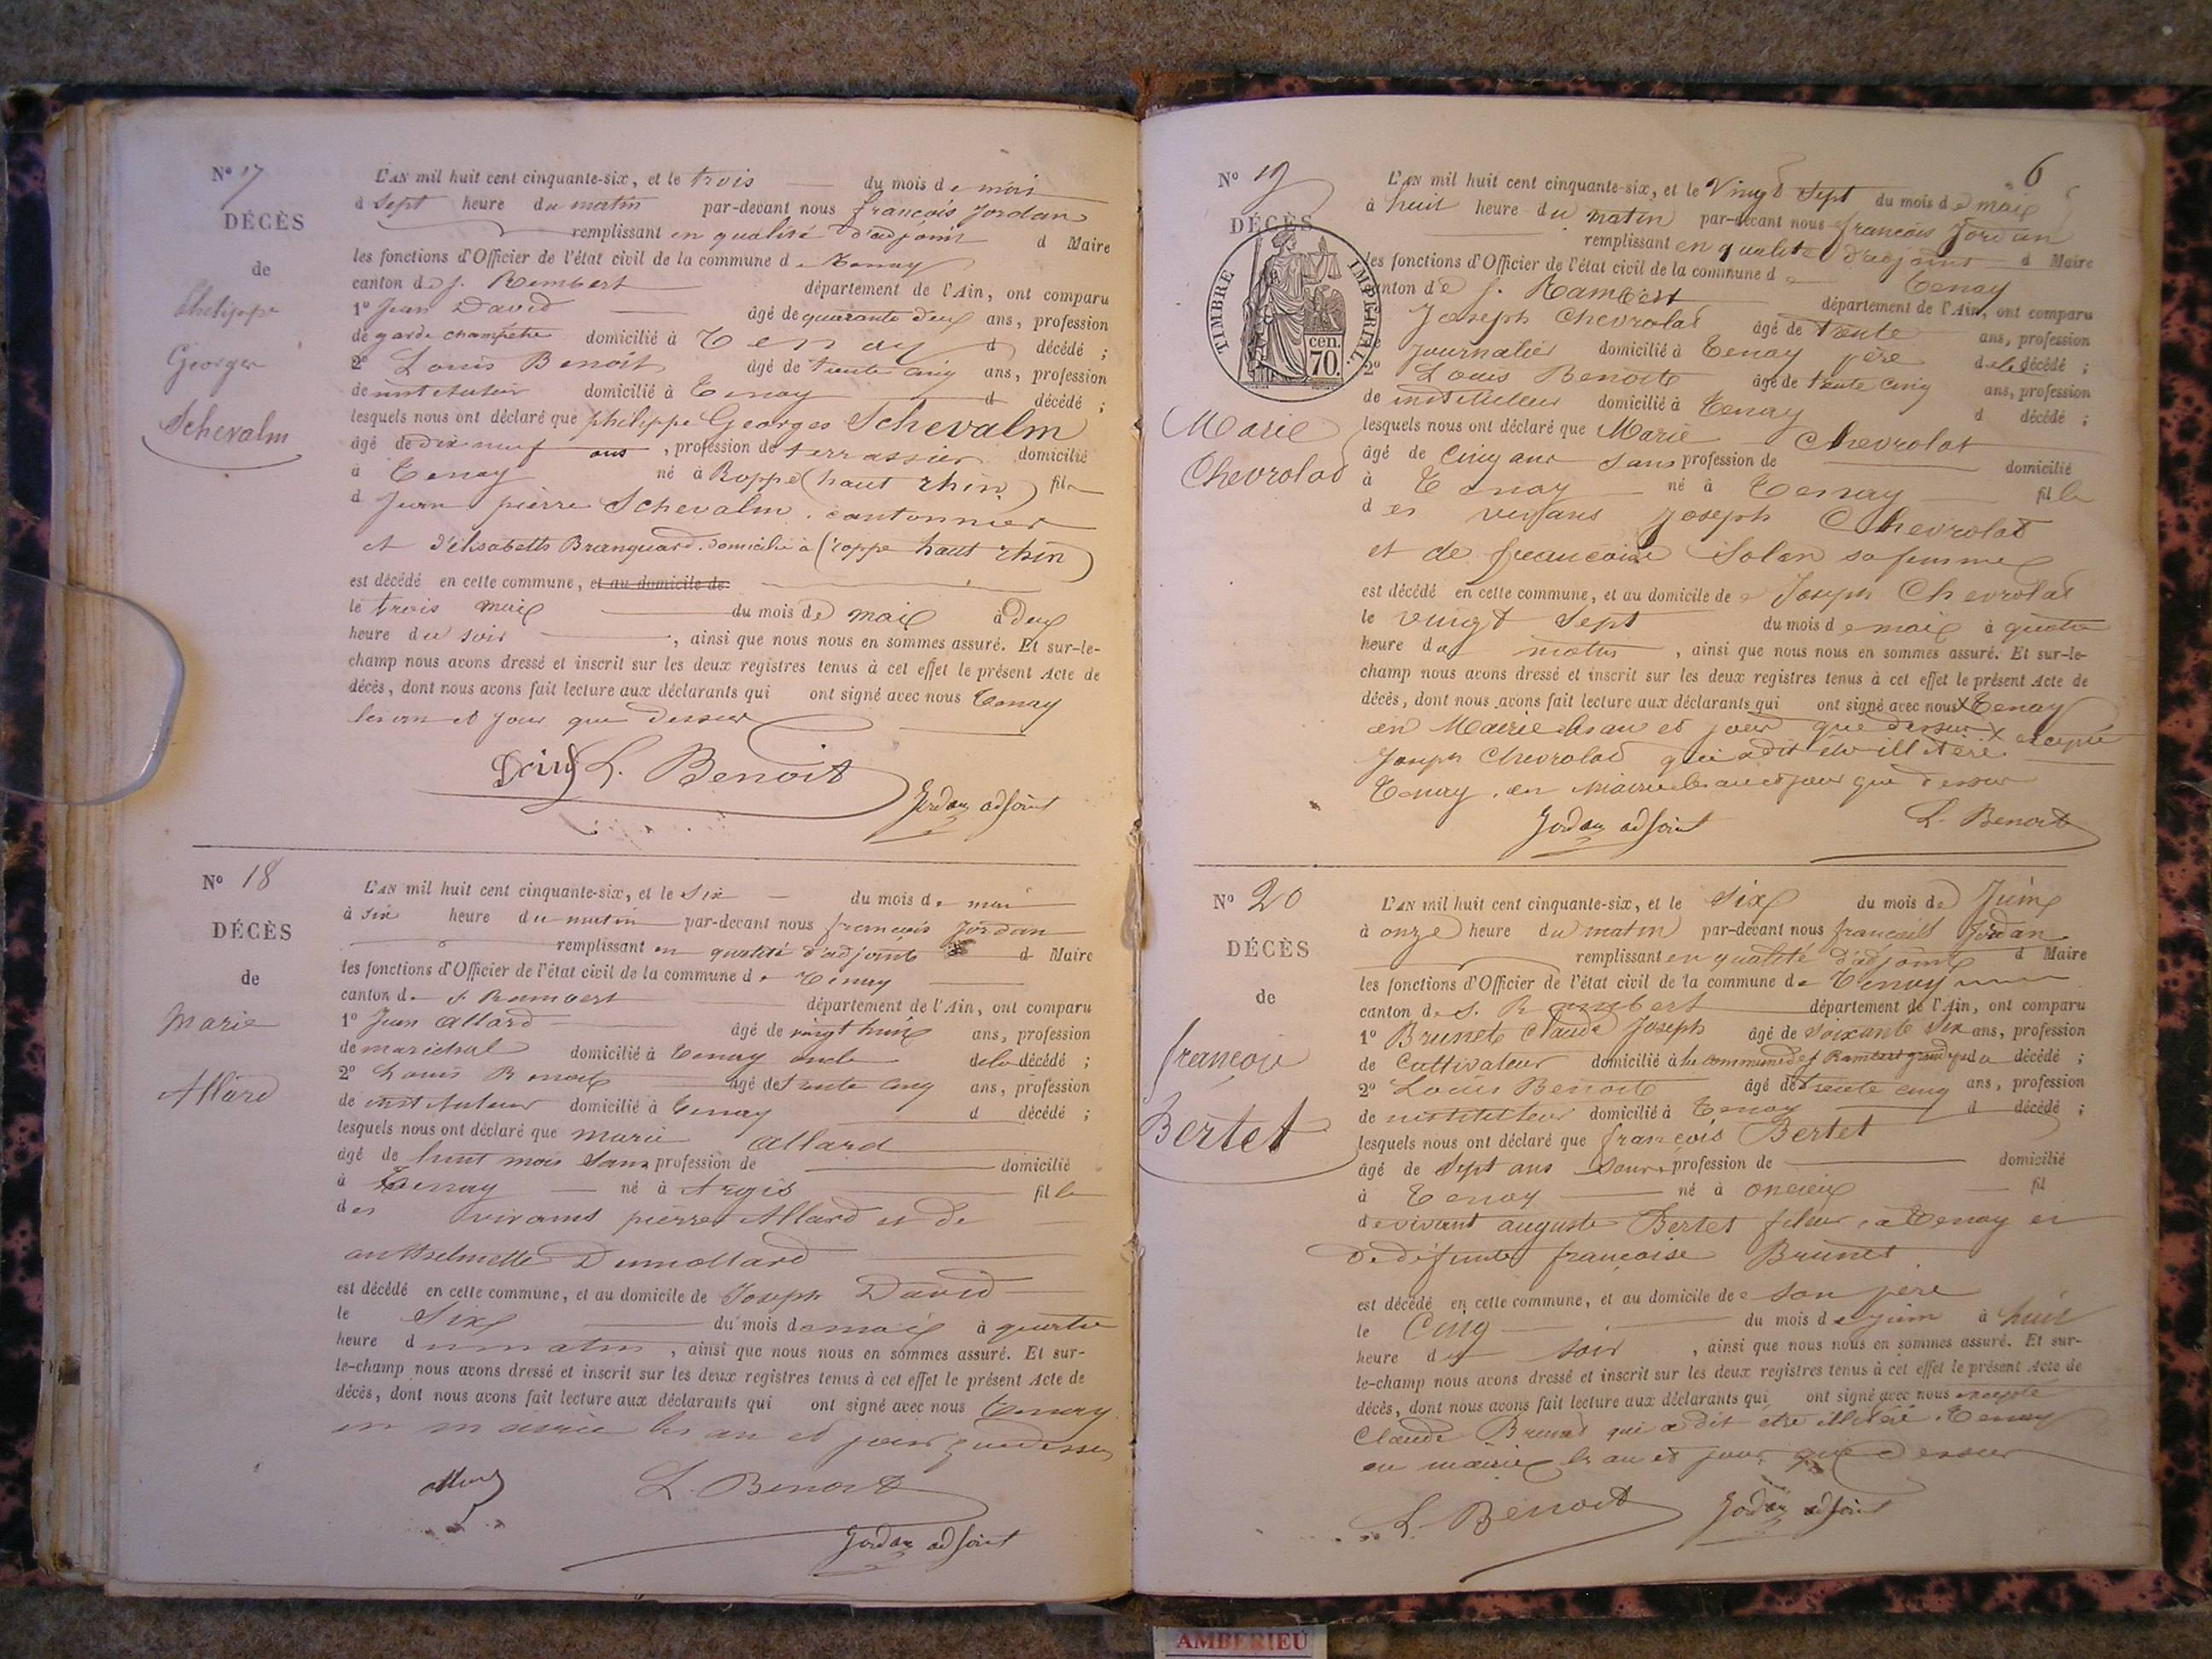 N° 17
DÉCÈS
de
Philippe
Georges
Schevalm
L'AN mil huit cent cinquante-six, et le trois du mois de mai
à sept heure du matin par-devant nous françois Jordan
remplissant en qualité d'adjoint d Maire
les fonctions d'Officier de l'état civil de la commune de Tenay
canton de S. Rembert département de l'Ain, ont comparu
1° Jean David âgé de quarante deux ans, profession
de garde champêtre domicilié à Tenay d décédé ;
2° Louis Benoit âgé de trente cinq ans, profession
de instituteur domicilié à Tenay d décédé ;
lesquels nous ont déclaré que philippe Georges Schevalm
âgé de dix neuf ans, profession de terrassier domicilié
à Tenay né à Roppe (haut rhin) fils
d Jean pierre Schevalm cantonnier
et d'élisabeth Branquard domicilié à Roppe haut rhin)
est décédé en cette commune, et au domicile de
le trois mai du mois de mai à deux
heure du soir, ainsi que nous nous en sommes assuré. Et sur-le-
champ nous avons dressé et inscrit sur les deux registres tenus à cet effet le présent Acte de
décès, dont nous avons fait lecture aux déclarants qui ont signé avec nous Tenay
les an et jour que dessus
L. Benoit
Jordan adjoint
N° 18
DÉCÈS
de
Marie
Allard
L'AN mil huit cent cinquante-six, et le six du mois de mai
à six heure du matin par-devant nous françois Jordan
remplissant en qualité d'adjoint d Maire
les fonctions d'Officier de l'état civil de la commune de Tenay
canton de S. Rambert département de l'Ain, ont comparu
1° Jean Allard âgé de vingt huit ans, profession
de maréchal domicilié à Tenay oncle de la décédé ;
2° Louis Benoit âgé de trente cinq ans, profession
de instituteur domicilié à Tenay d décédé ;
lesquels nous ont déclaré que marie Allard
âgé de huit mois sans profession de domicilié
à Tenay né à Argis fille
des vivants pierre Allard et de
anthelmette Dumollard
est décédé en cette commune, et au domicile de Joseph David
le Six du mois de mai à quatre
heure du matin, ainsi que nous nous en sommes assuré. Et sur-
le-champ nous avons dressé et inscrit sur les deux registres tenus à cet effet le présent Acte de
décès, dont nous avons fait lecture aux déclarants qui ont signé avec nous Tenay
en mairie les an et jour que dessus
L. Benoit
Jordan adjoint
6
N° 19
DÉCÈS
TIMBRE IMPÉRIAL.
cen.
70.
Marie
Chevrolat
L'AN mil huit cent cinquante-six, et le Vingt Sept du mois de mai
à huit heure du matin par-devant nous françois Jordan
remplissant en qualité d'adjoint d Maire
les fonctions d'Officier de l'état civil de la commune de Tenay
canton de S. Rambert département de l'Ain, ont comparu
Joseph Chevrolat âgé de trente ans, profession
Journalier domicilié à Tenay père de la décédé ;
2° Louis Benoit âgé de trente cinq ans, profession
de instituteur domicilié à Tenay d décédé ;
lesquels nous ont déclaré que Marie Chevrolat
âgé de cinq ans sans profession de domicilié
à Tenay né à Tenay fille
des vivans Joseph Chevrolat
et de francoise Solan sa femme
est décédé en cette commune, et au domicile de Joseph Chevrolat
le vingt Sept du mois de mai à quatre
heure du matin, ainsi que nous nous en sommes assuré. Et sur-le-
champ nous avons dressé et inscrit sur les deux registres tenus à cet effet le présent Acte de
décès, dont nous avons fait lecture aux déclarants qui ont signé avec nous Tenay
en Mairie les an et jour que dessus excepté
Joseph Chevrolat qui a dit être illitéré
Tenay, en Mairie les an et jour que dessus
Jordan adjoint
L. Benoit
N° 20
DÉCÈS
de
françois
Bertet
L'AN mil huit cent cinquante-six, et le six du mois de Juin
à onze heure du matin par-devant nous francois Jordan
remplissant en qualité d'adjoint d Maire
les fonctions d'Officier de l'état civil de la commune de Tenay
canton de S. Rambert département de l'Ain, ont comparu
1° Brunet Claude Joseph âgé de soixante six ans, profession
de Cultivateur domicilié à la commune de S Rambert grand père du décédé ;
2° Louis Benoit âgé de trente cinq ans, profession
de instituteur domicilié à Tenay d décédé ;
lesquels nous ont déclaré que françois Bertet
âgé de sept ans sans profession de domicilié
à Tenay né à oncieux fil
de vivant auguste Bertet fileur, à Tenay et
de défunte françoise Brunet
est décédé en cette commune, et au domicile de son père
le Cinq du mois de juin à huit
heure du soir, ainsi que nous nous en sommes assuré. Et sur-
le-champ nous avons dressé et inscrit sur les deux registres tenus à cet effet le présent Acte de
décès, dont nous avons fait lecture aux déclarants qui ont signé avec nous excepté
Claude Brunet qui a dit être illitéré. Tenay
en mairie les an et jour que dessus
L. Benoit
Jordan adjoint
AMBERIEU